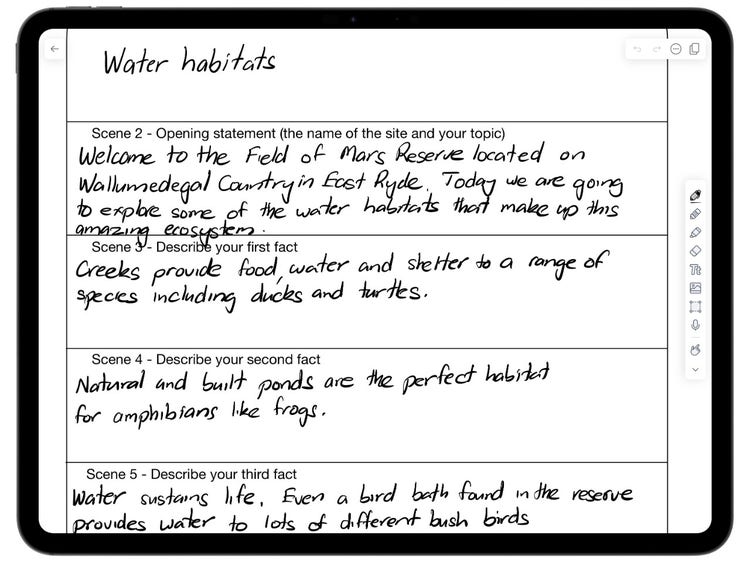 Water habitats
Scene 2 - Opening statement (the name of the site and your topic)
Welcome to the Field of Mars Reserve located on
Wallumedegal Country in East Ryde. Today we are going
to explore some of the water habitats that make up this
amazing ecosystem.
Scene 3 - Describe your first fact
Creeks provide food, water and shelter to a range of
species including ducks and turtles.
Scene 4 - Describe your second fact
Natural and built ponds are the perfect habitat
for amphibians like frogs.
Scene 5 - Describe your third fact
Water sustains life. Even a bird bath found in the reserve
provides water to lots of different bush birds